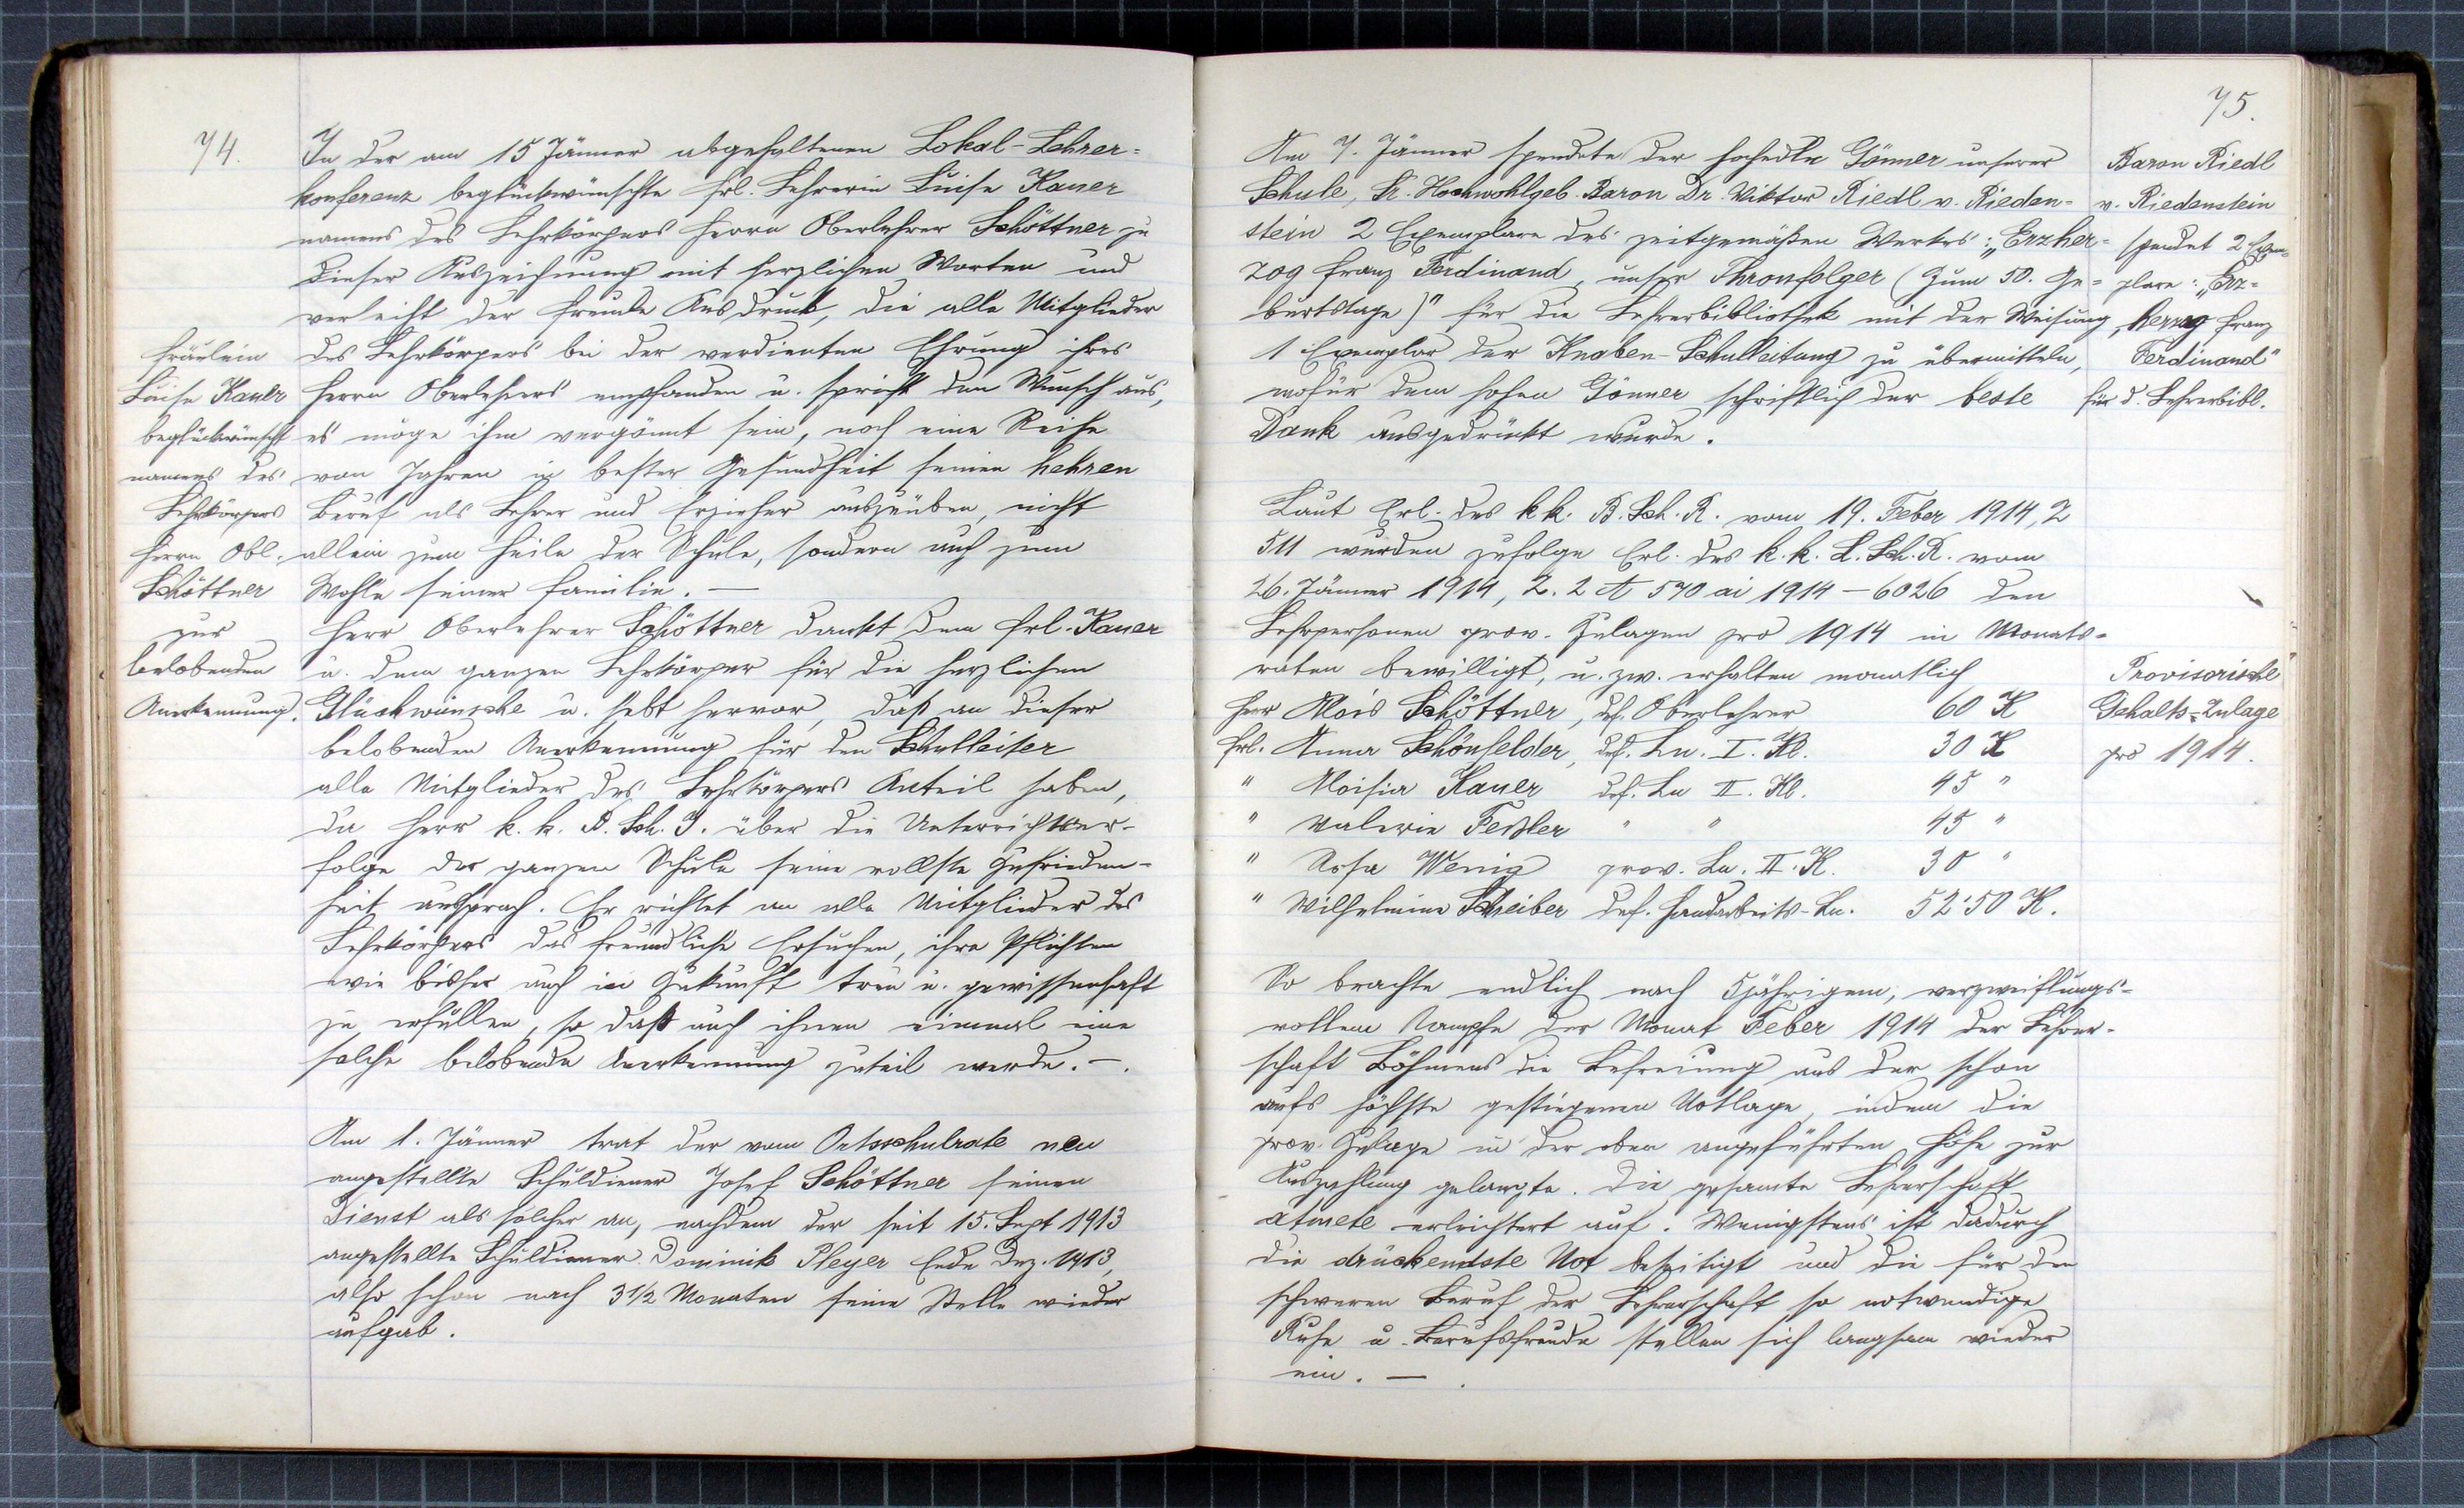 74.
In der am 15 Jänner abgehaltenen Lokal-Lehrer=
konferenz beglückwünschte Frl. Lehrerin Luise Kauer
namens des Lehrkörpers Herrn Oberlehrer Schöttner zu
dieser Auszeichnung mit herzlichen Worten und
verleiht der Freude Ausdruck, die alle Mitglieder
des Lehrkörpers bei der verdienten Ehrung ihres
Herrn Oberlehrers empfanden u. spricht den Wunsch aus,
es möge ihm vergönnt sein, noch eine Reihe
von Jahren in bester Gesundheit seinen hehren
Beruf als Lehrer und Erzieher auszuüben, nicht
allein zum Heile der Schule, sondern auch zum
Wohle seiner Familie. —
Herr Oberlehrer Schöttner dankt dem Frl. Kauer
u. dem ganzen Lehrkörper für die herzlichen
Glückwünsche u. hebt hervor, daß an dieser
belobenden Anerkennung für den Schulleiter
alle Mitglieder des Lehrkörpers Anteil haben,
da Herr k. k. B. Sch. I. über die Unterrichtser-
folge der ganzen Schule seine vollste Zufrieden-
heit aussprach. Er richtet an alle Mitglieder des
Lehrkörpers das freundliche Ersuchen, ihre Pflichten
wie bisher auch in Zukunft treu u. gewissenhaft
zu erfüllen, so daß auch ihnen einmal eine
solche belobende Anerkennung zuteil werde. —.
Fräulein
Luise Kauer
beglückwünscht
namens des
Lehrkörpers
Herrn Obl.
Schöttner
zur
belobenden
Anerkennung.
Am 1. Jänner trat der vom Ortsschulrate neu
angestellte Schuldiener Josef Schöttner seinen
Dienst als solcher an, nachdem der seit 15. Sept 1913
angestellte Schuldiener Dominik Pleyer Ende Dez. 1913,
also schon nach 3 1/2 Monaten seine Stelle wieder
aufgab.
75.
Am 7. Jänner spendete der hochedle Gönner unserer
Schule, Sr. Hochwohlgeb. Baron Dr. Viktor Riedl v. Rieden=
stein 2 Exemplare des zeitgemäßen Werkes: „Erzher=
zog Franz Ferdinand, unser Thronfolger (Zum 50. Ge=
burtstage)" für die Lehrerbibliothek mit der Weisung,
1 Exemplar der Knaben-Schulleitung zu übermitteln,
wofür dem hohen Gönner schriftlich der beste
Dank ausgedrückt wurde.
Baron Riedl
v. Riedenstein
spendet 2 Exem-
plare: „Erz=
herzog Franz
Ferdinand"
für d. Lehrerbibl.
Laut Erl. des k.k. B. Sch. R. vom 19. Feber 1914, Z
511 wurden zufolge Erl. des k. k. L. Sch. R. vom
26. Jänner 1914, Z. 2 A 570 ai 1914 – 6026 den
Lehrpersonen prov. Zulagen pro 1914 in Monats=
raten bewilligt, u. zw. erhalten monatlich
Herr Alois Schöttner, def. Oberlehrer 60 K
Frl. Anna Schönfelder, def. Ln. I. Kl. 30 K
" Aloisia Kauer def. Ln II. Kl. 45 "
" Valerie Feßler " " 45 "
" Rosa Wenig prov. Ln. II. K. 30 "
" Wilhelmine Schreiber def. Handarbeits-Ln. 52·50 K.
Provisorische
Gehalts=Zulage
pro 1914.
So brachte endlich nach 5jährigem, verzweiflungs=
vollem Kampfe der Monat Feber 1914 der Lehrer-
schaft Böhmens die Befreiung aus der schon
aufs höchste gestiegenen Notlage, indem die
prov. Zulage in der oben angeführten Höhe zur
Auszahlung gelangte. Die gesamte Lehrerschaft
atmete erleichtert auf. Wenigstens ist dadurch
die drückendste Not beseitigt und die für den
schweren Beruf der Lehrerschaft so notwendige
Ruhe u. Berufsfreude stellen sich langsam wieder
ein. —.